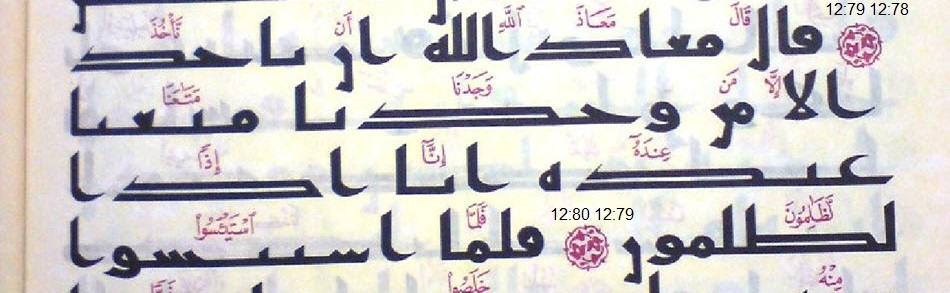 12:79 12:78
قَالَ مَعَاذَ ٱللَّهِ أَن تَّأْخُذَ
قال معاد الله ان ناحد
إِلَّا مَن وَجَدْنَا مَتَـٰعَنَا
الا من وحدنا متعنا
عِندَهُۥٓ إِنَّآ إِذًا
عنده انا ادا
لَّظَـٰلِمُونَ 12:80 12:79 فَلَمَّا ٱسْتَيْـَٔسُوا۟
لظلمون فلما استيسوا
مِنْهُ خَلَصُوا۟